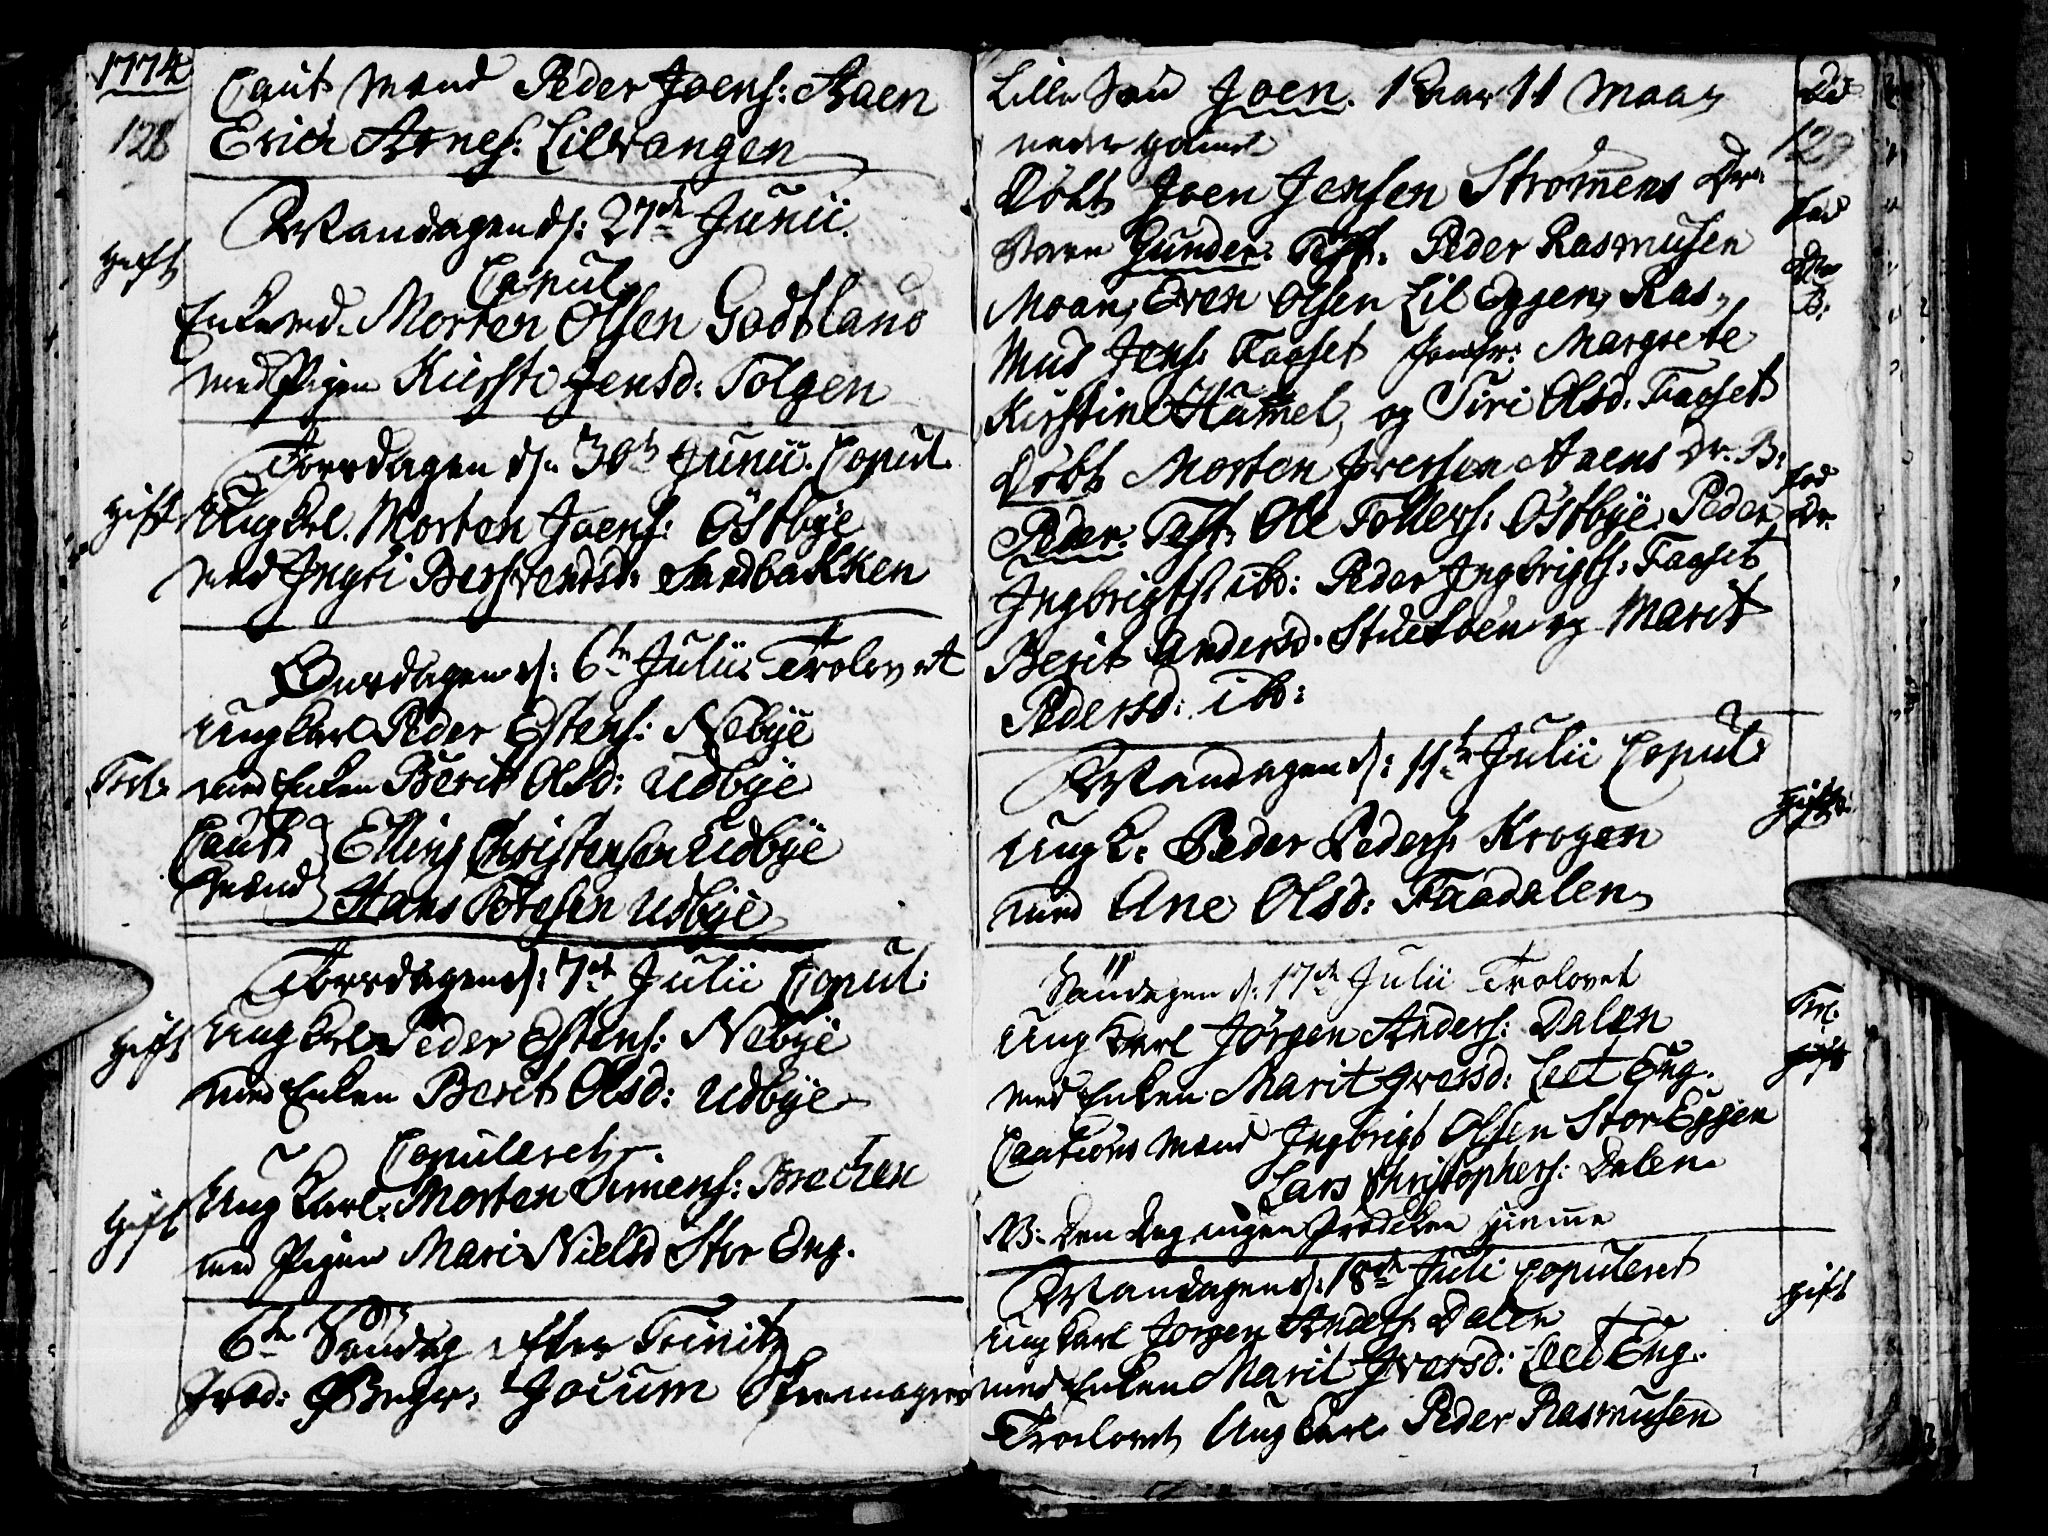 1774
128
Caut: Mænd Peder Joens: Aaen
Erich Arnes: Lilvangen
Mandagen d: 27de Junii.
Gift
Copul.
Enkemd. Morten Olsen Godtland
med Pigen Kiersti Jensd: Tolgen
Torsdagen d: 30te Junii. Copul.
Gift
Ung Karl. Morten Joens: Östbye
med Ingri Bersvendsd: Sandbakken
Onsdagen d: 6te Julii Trolovet
Ung Karl Peder Estens: Nebye
Trl.
med Enken Berit Olsd: Udbye
Caut: Mænd
Elling Christensen Udbye
Hans Totesen Udbye
Torsdagen d: 7de Julii Copul:
Gift
Ung Karl Peder Estens: Nebye
med Enken Berit Olsd: Udbye
Copuleret
Gift
Ung Karl. Morten Simens: Brecken
med Pigen Mari Nielsd Stor Eng.
6te Søndag efter Trinit:
Jord: Jocum
Lille Søn Joen. 1 Aar 11 Maan
129
Döbt Joen Jensen Strömens
Barn Gunder. Test. Peder Rasmusen
Moan, Even Olsen Lil Eggen, Ras-
mus Jens: Faaset Margrete
Kirstine Humel, og Siri Olsd. Faaset
Döbt Morten Iversen Aaens Dr. B:
Peder. Test. Ole Tollefs: Östbye. Peder
Ingbrigts: ibd: Peder Ingbrigts: Faaset
Berit Andersd. Stuesöen og Marit
Pedersd: ibd:
Mandagen d: 11te Julii Copul:
Gift
Ung K. Peder Peders: Krogen
med Ane Olsd: Faadalen
Søndagen d: 17de Julii Trolovet
Trl.
Ung Karl Jörgen Anders: Dalen
med Enken Marit Iversd: Leet Eng.
Cautions Mænd Ingbrigt Olsen Stor Eggen
Lars Christophers: Dalen
NB: Den Dag ingen Prædiken
Mandagen d: 18de Juli copuleret
Gift
Ung Karl Jörgen Anders: Dalen
med Enken Marit Iversd: Leet Eng.
Trolovet Ung Karl Peder Rasmusen